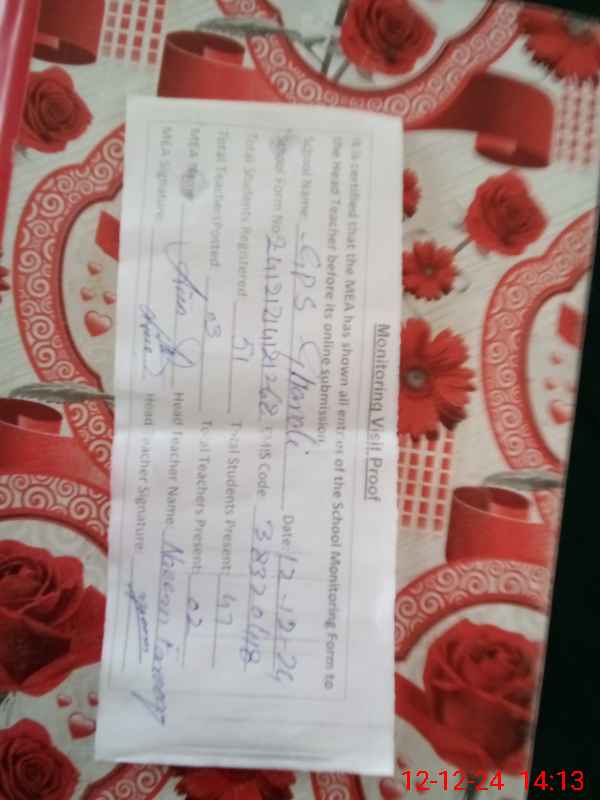 Monitoring Visit Proof
It is certified that the MEA has shown all entries of the School Monitoring Form to
the Head Teacher before its online submission.
School Name: GPS Date: 12-12-24
School Form No: EMIS Code: 38320418
Total Students Registered: 51 Total Students Present: 47
Total Teachers Posted: 03 Total Teachers Present: 02
MEA Name: Head Teacher Name:
MEA Signature: Head Teacher Signature:
12-12-24 14:13